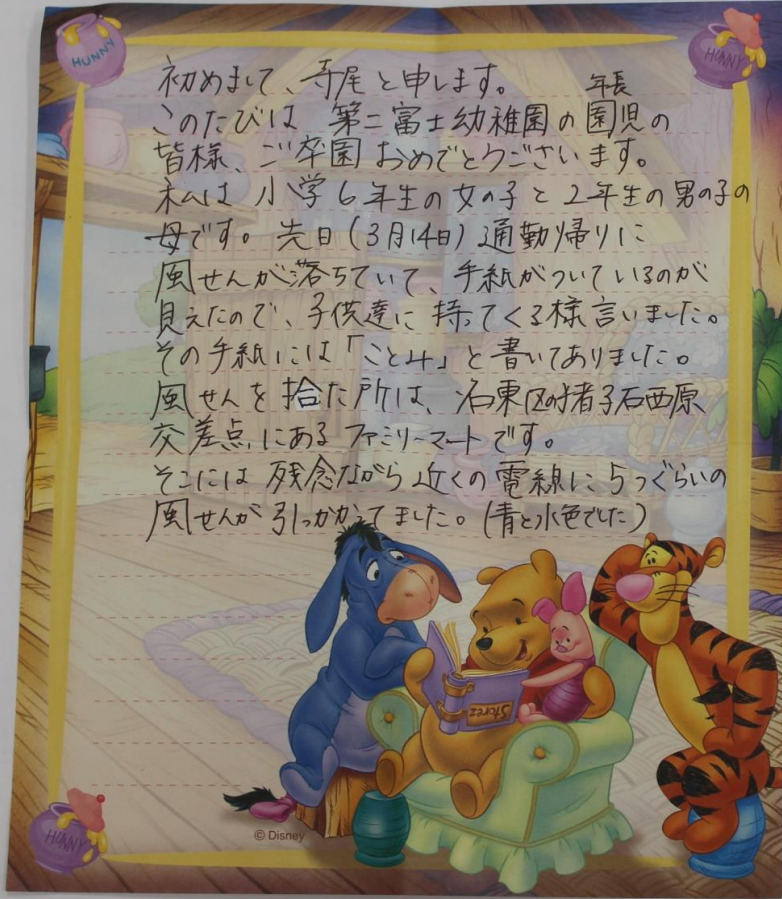 HUNNY
HUNNY
初めまして、寺尾と申します。
年長
このたびは 第二富士幼稚園の園児の
皆様、ご卒園おめでとうございます。
私は 小学6年生の女の子と2年生の男の子の
母です。先日(3月14日)通勤帰りに
風せんが落ちていて、手紙がついているのが
見えたので、子供達に持ってくる様言いました。
その手紙には「こと4」と書いてありました。
風せんを拾た所は、名東区の猪子石西原
交差点にあるファミリーマートです。
そこには残念ながら近くの電線に5つぐらいの
風せんが引っかかってました。(青と水色でした)
Storez
HUNNY
© Disney